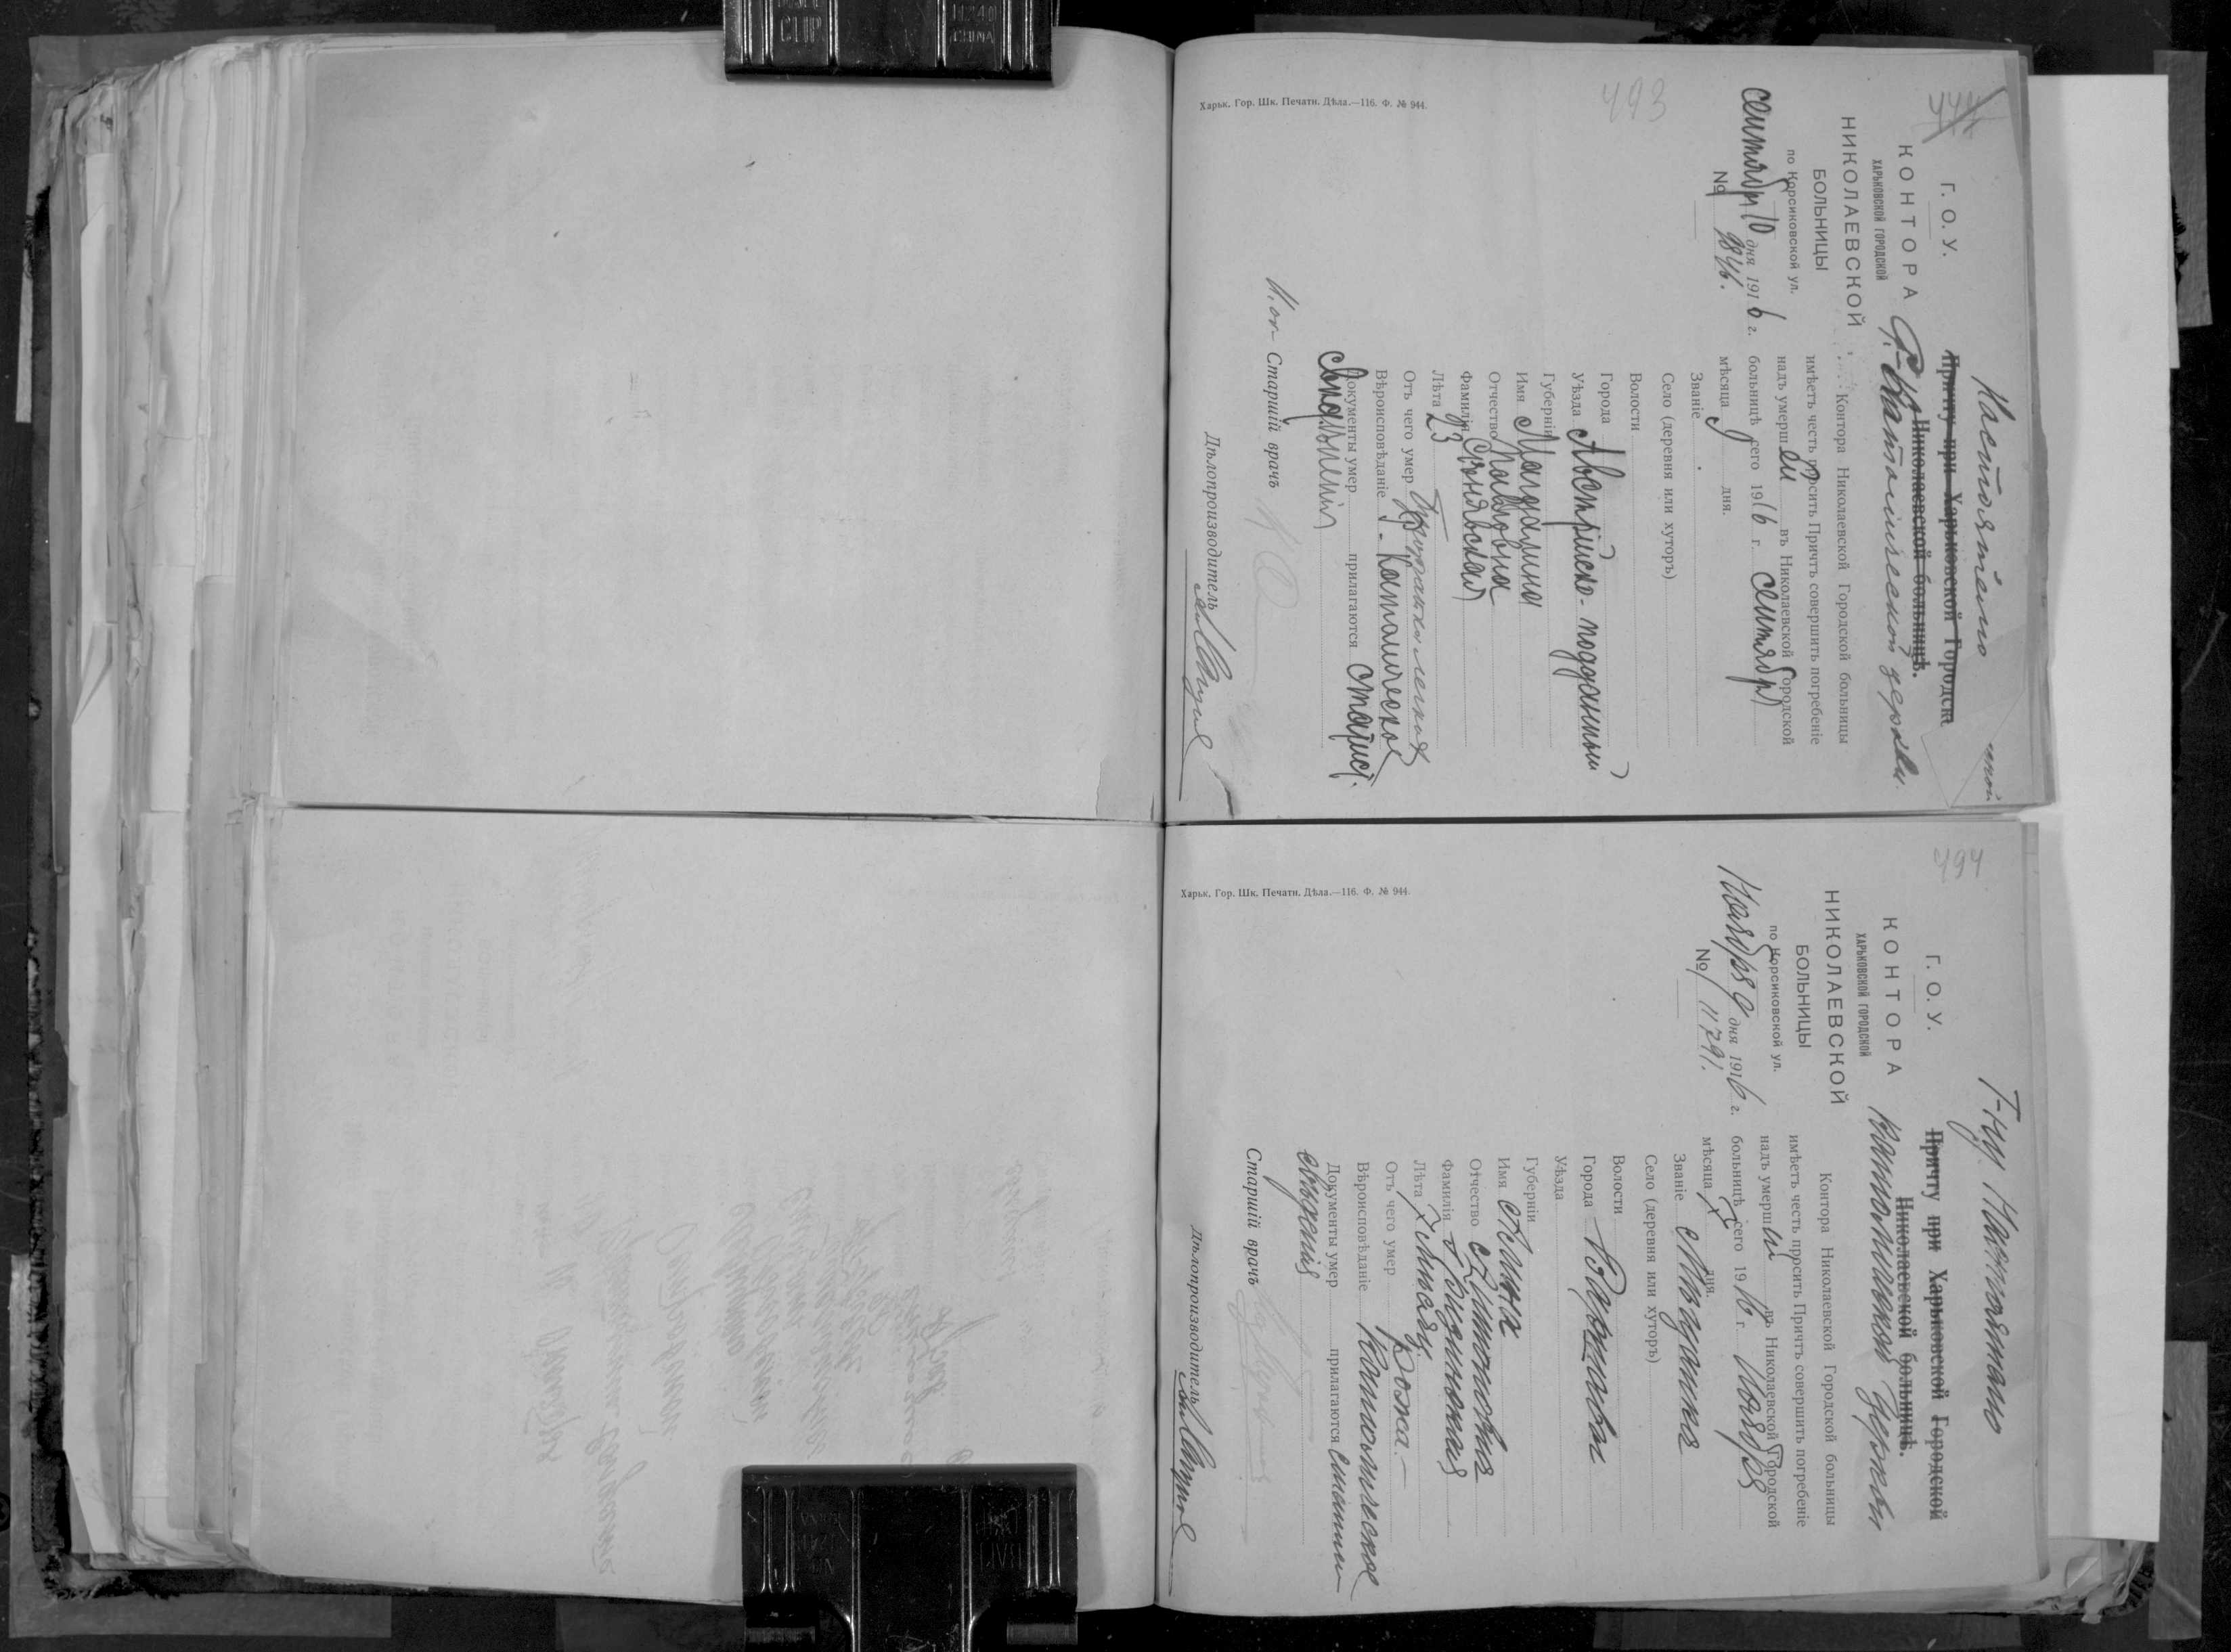 493
Г. О. У.
КОНТОРА
ХАРЬКОВСКОЙ ГОРОДСКОЙ
НИКОЛАЕВСКОЙ
БОЛЬНИЦЫ
по Корсиковской ул.
сентября 10 дня 1916 г.
№ 9846.
Настоятелю
Причту при Харьковской Городск
Николаевской больницѣ.
Р.-Католической церкви.
Контора Николаевской Городской больницы
имѣетъ честь просить Причтъ совершить погребеніе
надъ умершей въ Николаевской Городской
больницѣ сего 1916 г. сентября
мѣсяца 9 дня.
Званіе
Село (деревня или хуторъ)
Волости
Города
Уѣзда Австрійско-подданный
Губерніи
Имя Магдалина
Отчество Павловна
Фамилія
Лѣта 23
Отъ чего умер
Вѣроисповѣданіе Р.-Католическое
Документы умер прилагаются
Старшій врачъ
Дѣлопроизводитель
Харьк. Гор. Шк. Печатн. Дѣла.—116. Ф. № 944.
494
Г. О. У.
КОНТОРА
ХАРЬКОВСКОЙ ГОРОДСКОЙ
НИКОЛАЕВСКОЙ
БОЛЬНИЦЫ
по Корсиковской ул.
Ноября 9 дня 1916 г.
№ 11791.
Г-ну Настоятелю
Причту при Харьковской Городской
Николаевской больницѣ.
Католической Церкви
Контора Николаевской Городской больницы
имѣетъ честь просить Причтъ совершить погребеніе
надъ умерш въ Николаевской Городской
больницѣ сего 1916 г. Ноября
мѣсяца дня.
Званіе Мѣщанка
Село (деревня или хуторъ)
Волости
Города Варшавы
Уѣзда
Губерніи
Имя Анна
Отчество Антоновна
Фамилія
Лѣта 7 мѣсяц
Отъ чего умер Рожа.—
Вѣроисповѣданіе Католическое
Документы умер прилагаются
свѣденія
Старшій врачъ
Дѣлопроизводитель
Харьк. Гор. Шк. Печатн. Дѣла.—116. Ф. № 944.